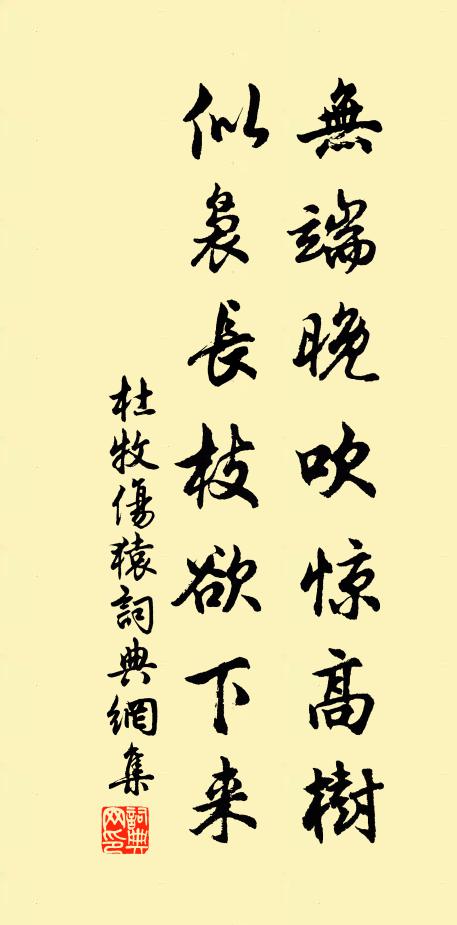 無端晚吹惊高樹
似裊長枝欲下来
杜牧傷猿詞典網集
詞典網印